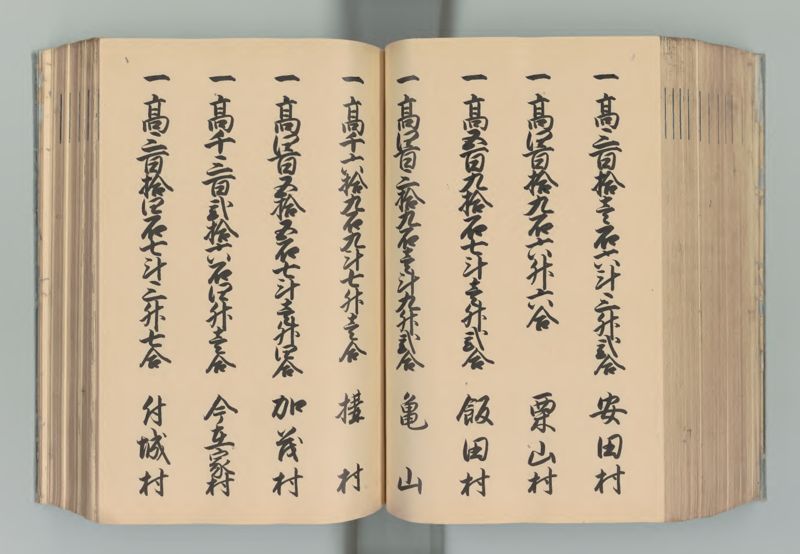 一高三百拾壱石六斗三升弐合 安田村
一高四百拾九石六升六合 粟山村
一高五百九拾石七斗壱升弐合 飯田村
一高四百三拾九石壱斗九升弐合 亀山
一高千六拾九石九斗七升壱合 村
一高四百五拾五石七斗壱升四合 加茂村
一高千三百弐拾六石四升壱合 今在家村
一高三百拾四石七斗三升七合 付城村